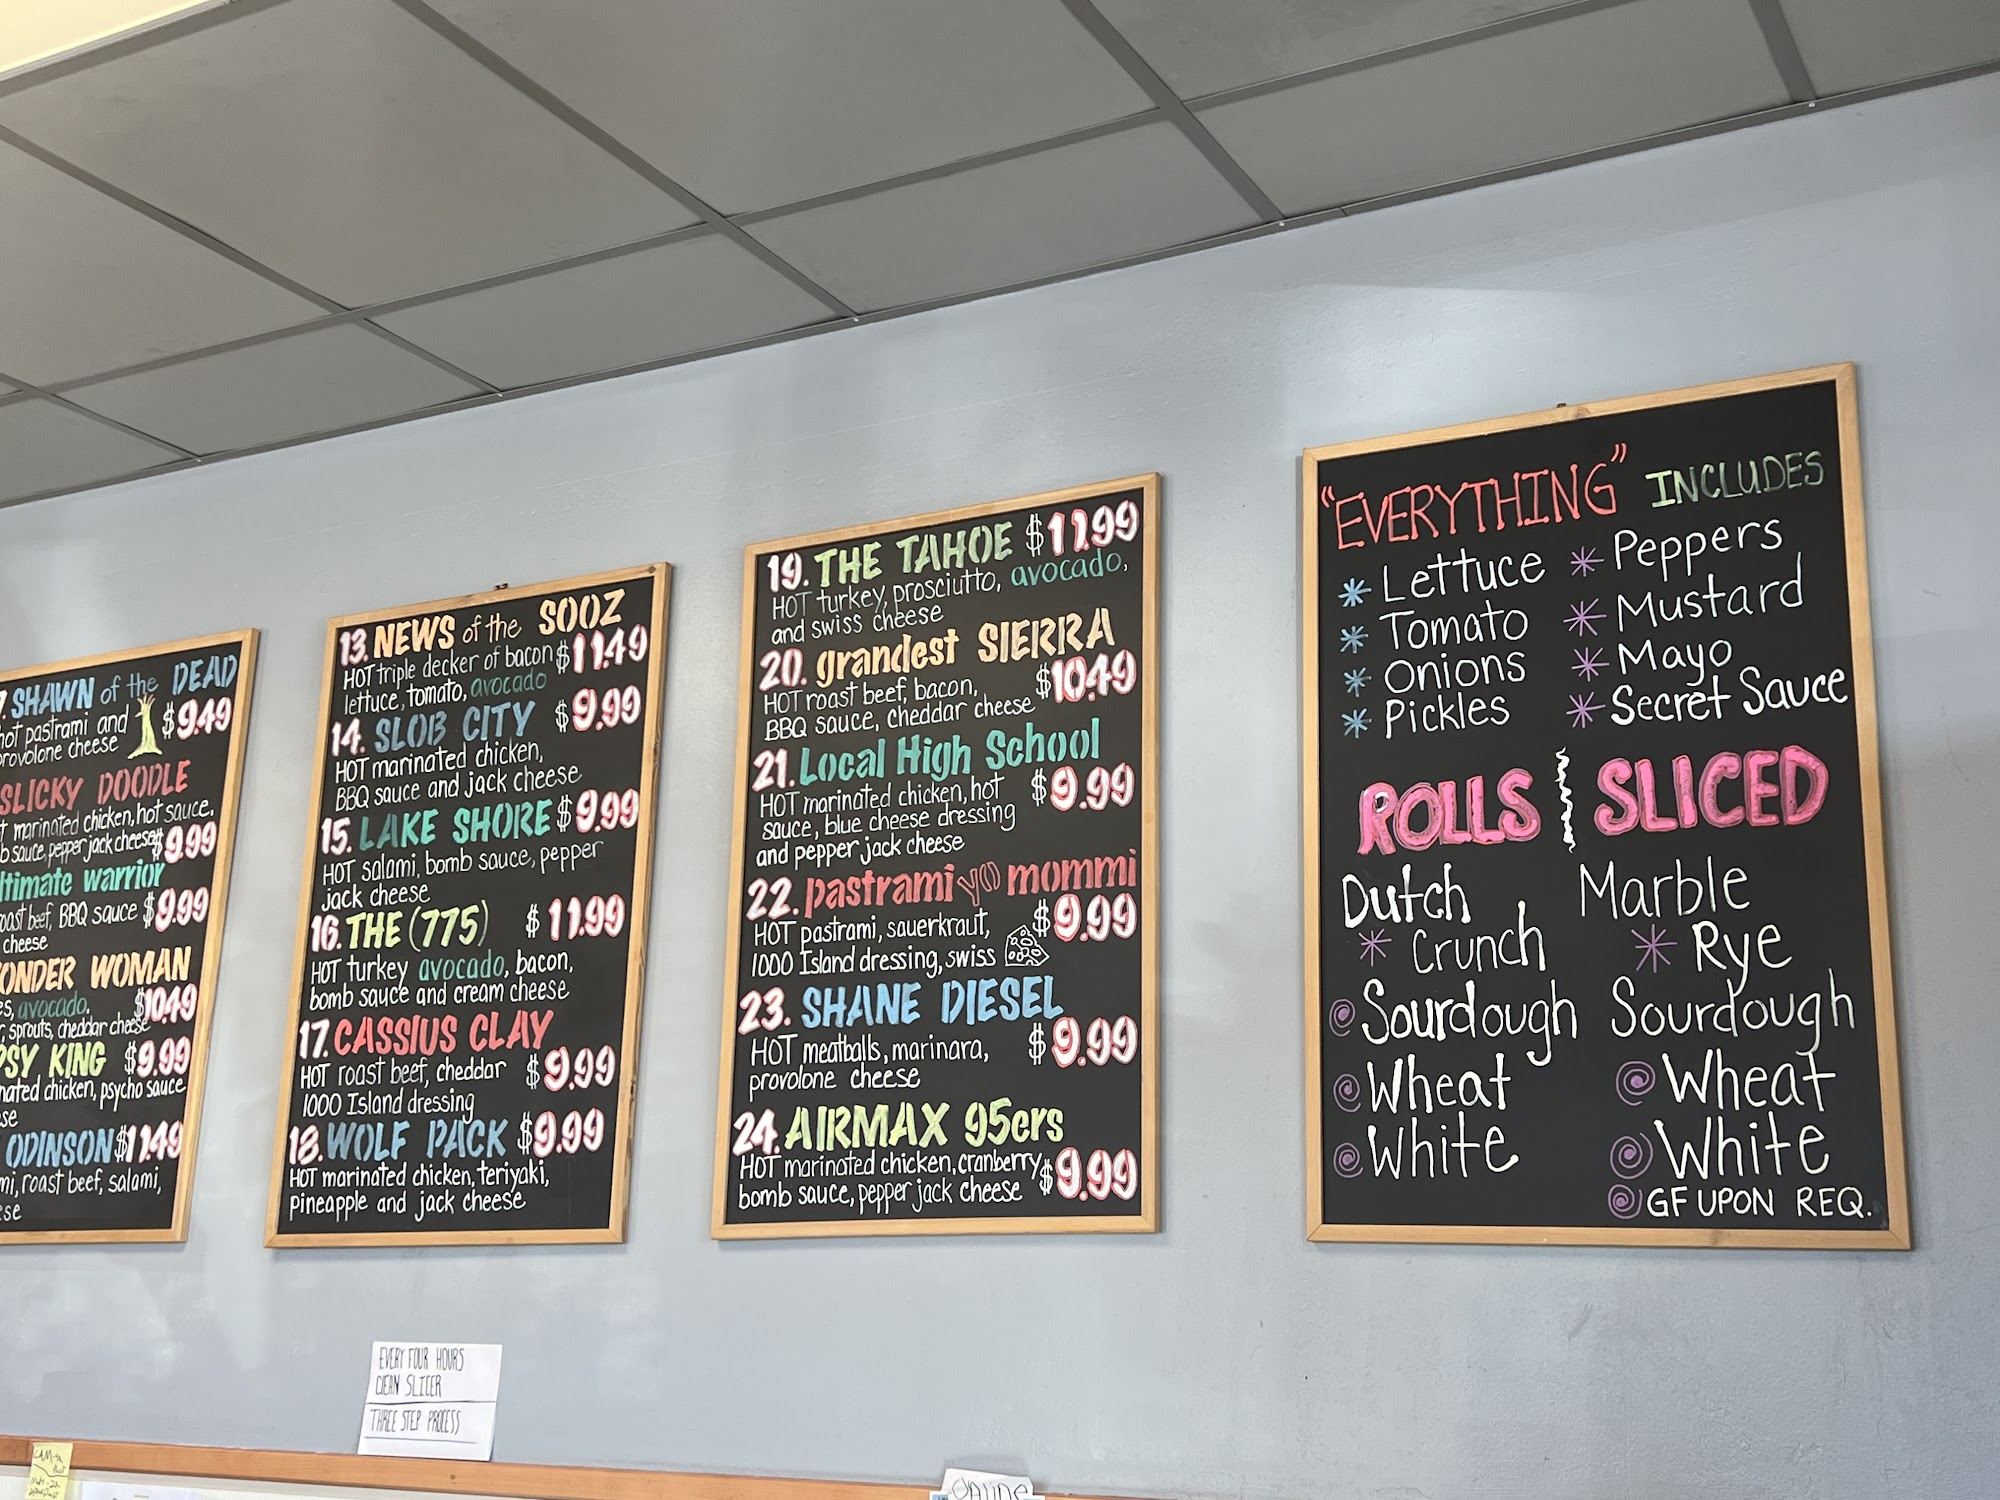 7. SHAWN of the DEAD
hot pastrami and $9.49
provolone cheese
SLICKY DOODLE
marinated chicken, hot sauce,
sauce, pepper jack cheese $9.99
ltimate warrior
oast beef, BBQ sauce $9.99
cheese
ONDER WOMAN
avocado, $10.49
sprouts, cheddar cheese
PSY KING $9.99
nated chicken, psycho sauce
ODINSON $11.49
mi, roast beef, salami,
13. NEWS of the SOOZ
HOT triple decker of bacon $11.49
lettuce, tomato, avocado
14. SLOB CITY $9.99
HOT marinated chicken,
BBQ sauce and jack cheese
15. LAKE SHORE $9.99
HOT salami, bomb sauce, pepper
jack cheese
16. THE (775) $11.99
HOT turkey avocado, bacon,
bomb sauce and cream cheese
17. CASSIUS CLAY
HOT roast beef, cheddar $9.99
1000 Island dressing
18. WOLF PACK $9.99
HOT marinated chicken, teriyaki,
pineapple and jack cheese
19. THE TAHOE $11.99
HOT turkey, prosciutto, avocado,
and swiss cheese
20. grandest SIERRA
HOT roast beef, bacon, $10.49
BBQ sauce, cheddar cheese
21. Local High School
HOT marinated chicken, hot $9.99
sauce, blue cheese dressing
and pepper jack cheese
22. pastrami yo mommi
HOT pastrami, sauerkraut, $9.99
1000 Island dressing, swiss
23. SHANE DIESEL
HOT meatballs, marinara, $9.99
provolone cheese
24. AIRMAX 95ers
HOT marinated chicken, cranberry $9.99
bomb sauce, pepper jack cheese
"EVERYTHING" INCLUDES
Lettuce
Tomato
Onions
Pickles
Peppers
Mustard
Mayo
Secret Sauce
ROLLS
Dutch
Crunch
Sourdough
Wheat
White
SLICED
Marble
Rye
Sourdough
Wheat
White
GF UPON REQ.
EVERY FOUR HOURS
CLEAN SLICER
THREE STEP PROCESS
ONLINE